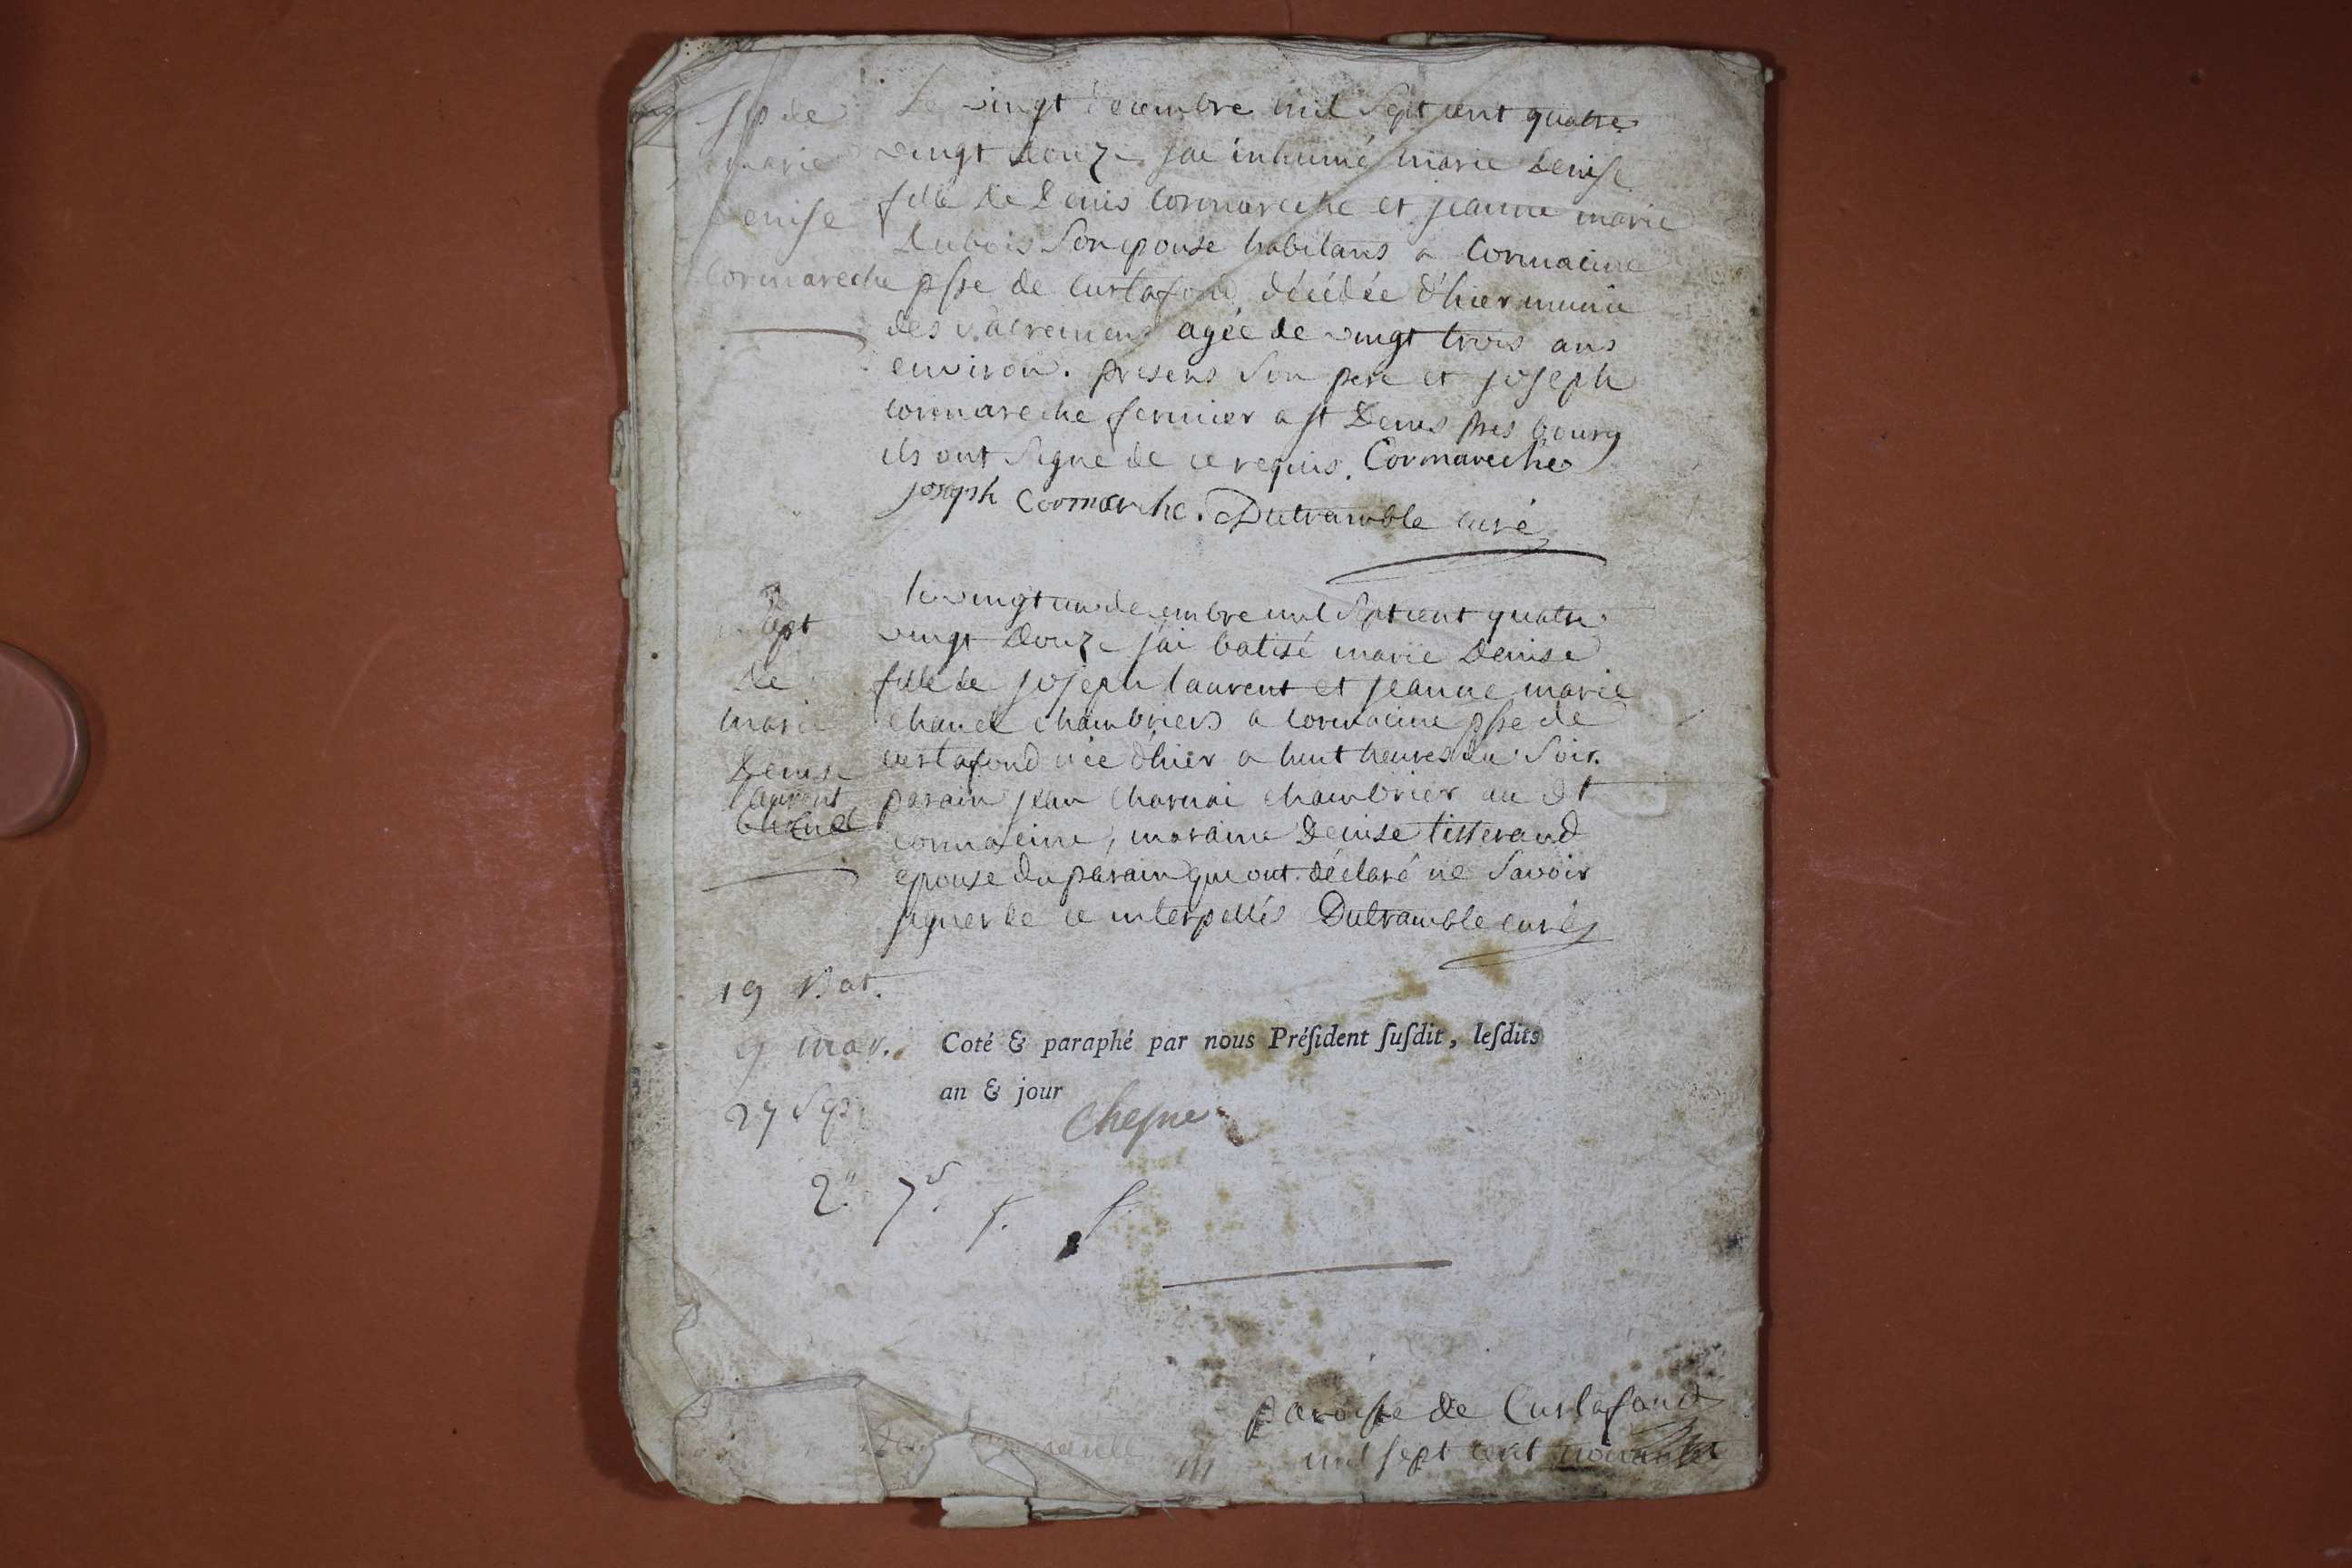 Sp de
marie
Denise
Cormareche
Le vingt decembre mil Sept cent quatre
vingt douze j'ai inhumé marie Denise
fille de Denis Cormareche et jeanne marie
Dubois Son epouse habitans a Cormacine
psse de curtafond décédée d'hier munie
des Sacremens agée de vingt trois ans
environ. presens Son pere et joseph
cormareche fermier a st Denis pres bourg
ils ont Signé de ce requis. Cormareche
joseph Cormarche. Dutramble curé
Bapt
de
marie
Denise
laurent
chanel
le vingt un decembre mil Sept cent quatre
vingt Douze j'ai batisé marie Denise
fille de joseph laurent et jeanne marie
chanel chambriers a cormacine psse de
curtafond née d'hier a huit heures du Soir.
parain jean charnai chambrier au dt
cormacine, maraine Denise tisserand
epouse du parain qui ont déclaré ne Savoir
signer de ce interpellés Dutramble curé
19 Bat.
9 mar.
27 Sep.
Coté & paraphé par nous Préſident ſuſdit, leſdits
an & jour
Chesne
paroisse de Curtafond
mil sept cent